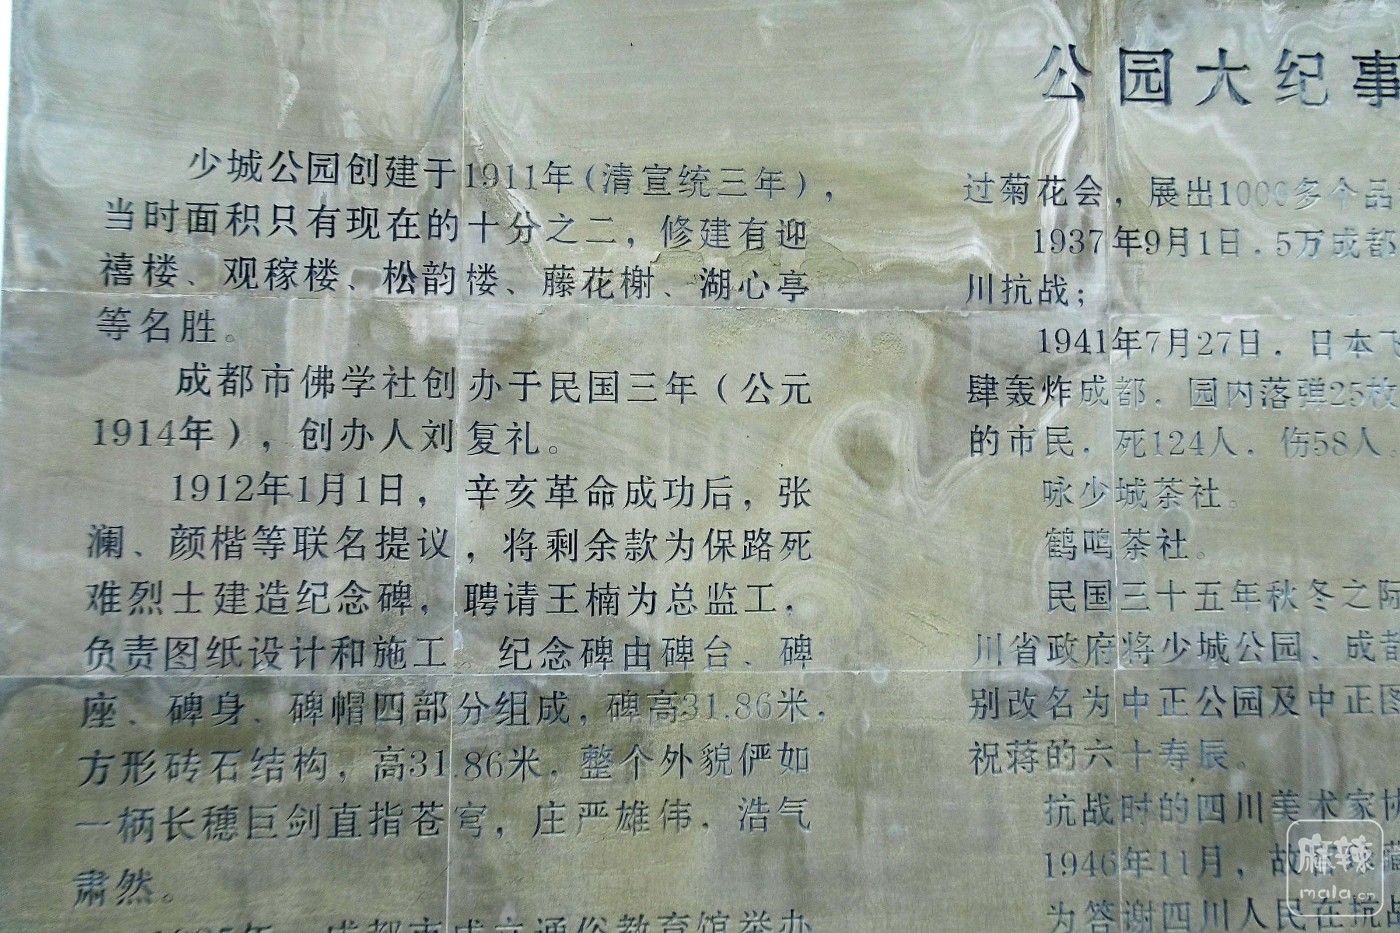 公园大纪事
少城公园创建于1911年(清宣统三年)，
当时面积只有现在的十分之二，修建有迎
禧楼、观稼楼、松韵楼、藤花榭、湖心亭
等名胜。
成都市佛学社创办于民国三年（公元
1914年），创办人刘复礼。
1912年1月1日，辛亥革命成功后，张
澜、颜楷等联名提议，将剩余款为保路死
难烈士建造纪念碑，聘请王楠为总监工，
负责图纸设计和施工 纪念碑由碑台、碑
座、碑身、碑帽四部分组成，碑高31.86米，
方形砖石结构，高31.86米，整个外貌俨如
一柄长穗巨剑直指苍穹，庄严雄伟，浩气
肃然。
年，成都市成立通俗教育馆举办
过菊花会，展出1000多个品
1937年9月1日，5万成都
川抗战；
1941年7月27日，日本飞
肆轰炸成都，园内落弹25枚
的市民，死124人，伤58人。
咏少城茶社。
鹤鸣茶社。
民国三十五年秋冬之际
川省政府将少城公园、成都
别改名为中正公园及中正图
祝蒋的六十寿辰。
抗战时的四川美术家协
1946年11月，故
为答谢四川人民在抗战
麻辣
mala.cn